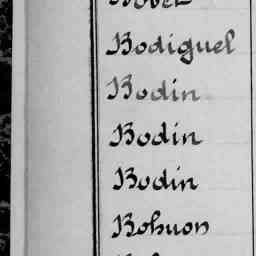 Bodiguel
Bodin
Bodin
Bodin
Bohuon